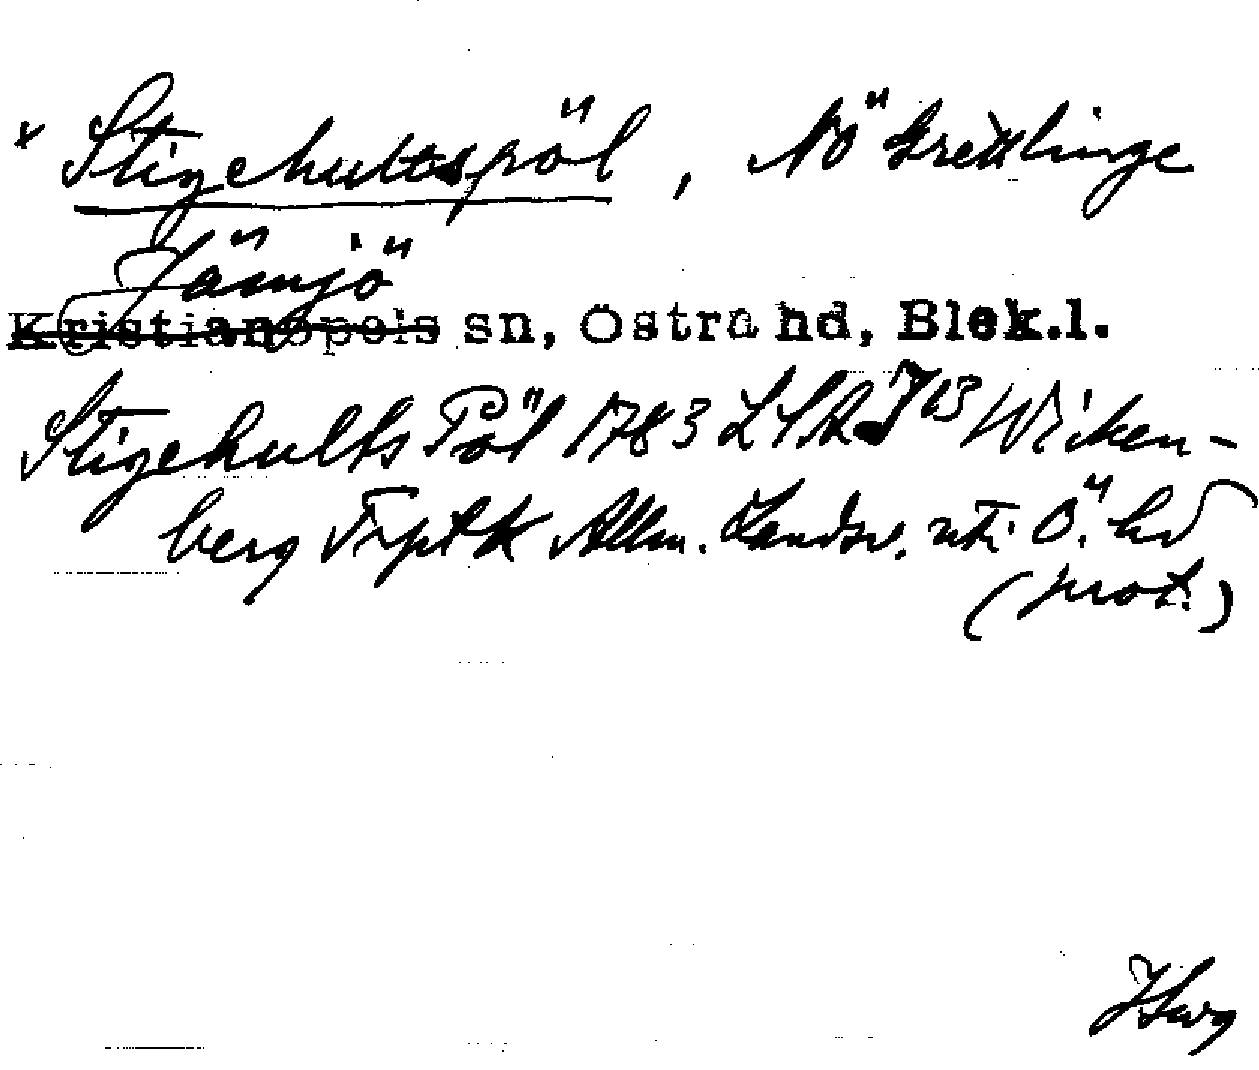 * Stigehultspöl, NÖ Grettlinge
Jämjö
Kristianopels sn, Östra hd, Blek.l.
Stigehults Pöl 1783 LSA J 13 Wicken-
berg Trpt K Allm. Landsv. uti Ö. hd
(prot.)